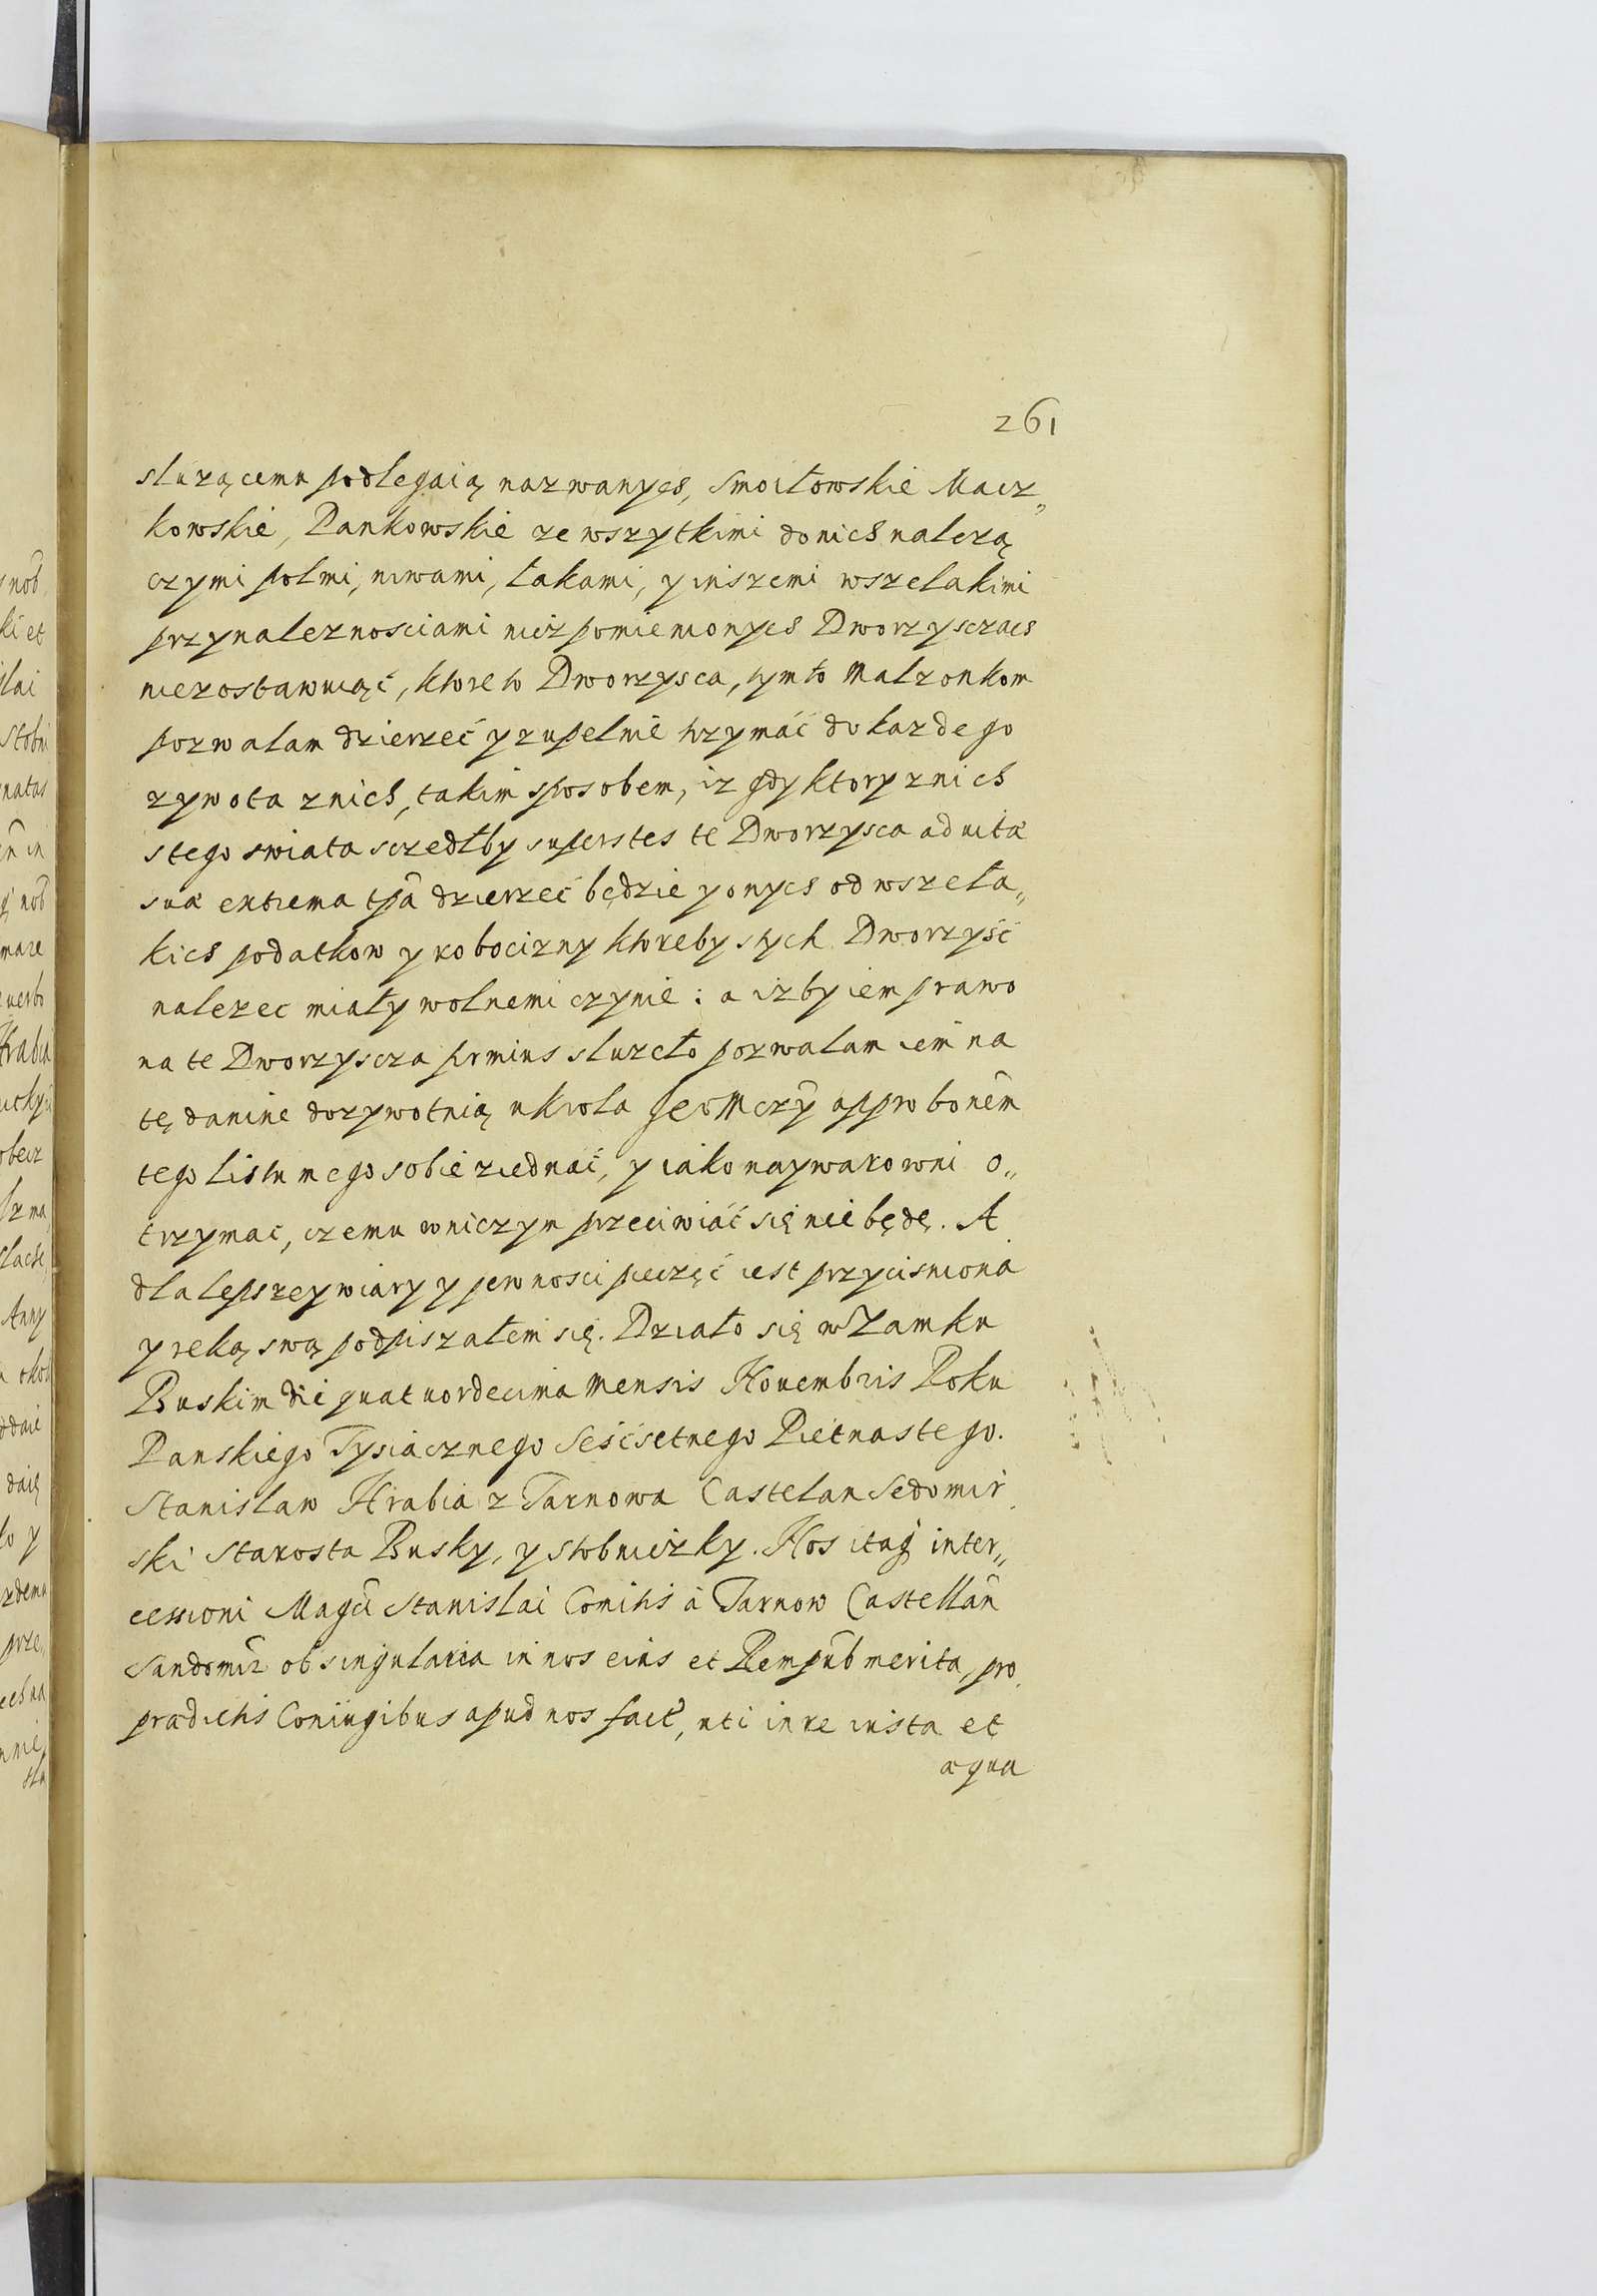 261
sluzącemu podlegaią nazwanych, Smoitowskie Macz„
kowskie, Pankowskie ze wszytkimi do nich nalezą
czymi polmi, niwami, łakami, y inszemi wszelakimi
przynaleznosciami niż pomienionych Dworzysczach
niezostawuiąć, które to Dworzysca, tym to Malzonkom
pozwalam dzierzeć y zupelnie trzymać do kazdego
zywota znich, takim sposobem, iz gdy ktory znich
stego swiata sczedłby superstes te Dworzysca ad vitã
suã extrema tpã dzierzeć będzie y onych od wszela„
kich podatkow y robocizny ktoreby stych Dworzyść
nalezec miały wolnemi czynie: a izby iem prawo
na te Dworzyscza firmius sluzeło pozwalam iem na
tę danine dozywotnią u Krola Jeo Mczy approbonem
tego listu mego sobie ziednać, y iako naywarowni o„
trzymac, czemu wniczym przeciwiać się nie będę. A
dla lepszey wiary y pewnosci pieczęć iest przycisniona
y reką swą podpiszałem się. Działo się w Zamku
Buskim die quatuordecima mensis Nouembris Roku
Panskiego Tysiacznego Seśćsetnego Pietnastego.
Stanislaw Hrabia z Tarnowa Castelan Sedomir
ski Starosta Busky, y Stobniczky. Nos itaq inter„
cessioni Magci Stanislai Comitis à Tarnow Castellan
Sandomir ob singularia in nos eius et Rempub merita, pro
prædictis Coniugibus apud nos fact, uti in re iusta et
æqua